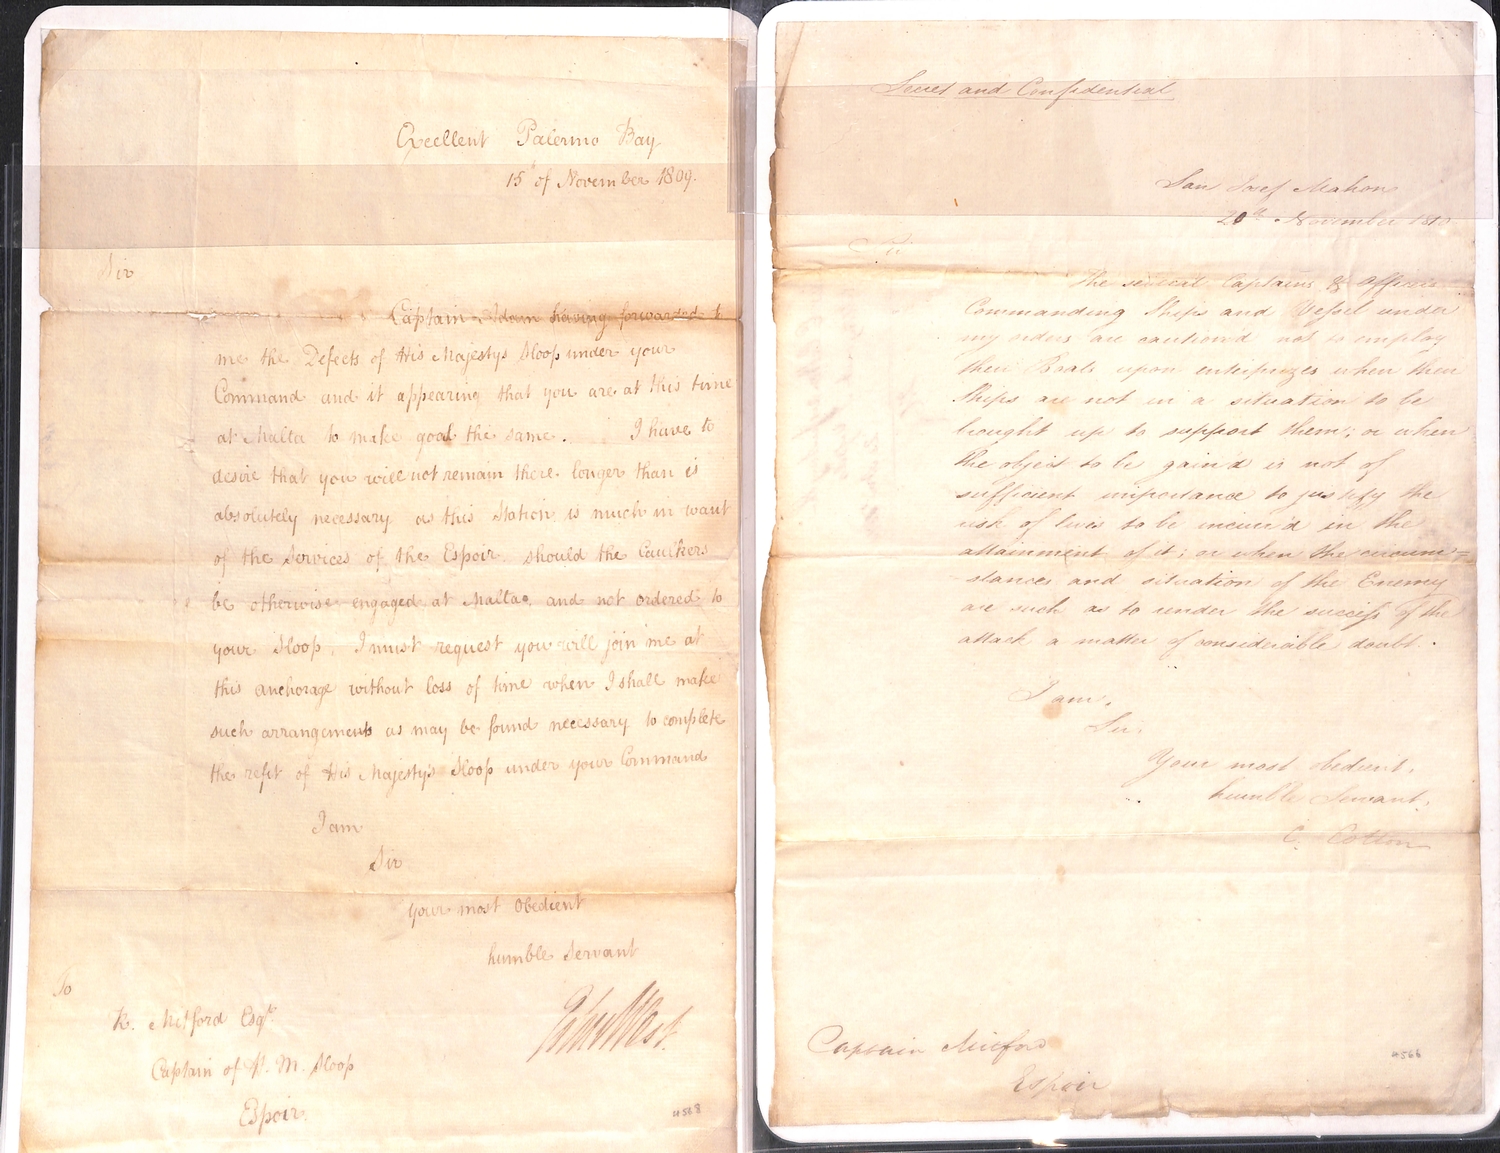 Excellent Palermo Bay
15th of November 1809.
Sir
Captain Adam having forwarded to
me the Defects of His Majestys Sloop under your
Command and it appearing that you are at this time
at Malta to make good the same. I have to
desire that you will not remain there longer than is
absolutely necessary as this Station is much in want
of the Services of the Espoir. should the Caulkers
be otherwise engaged at Malta, and not ordered to
your Sloop, I must request you will join me at
this anchorage without loss of time when I shall make
such arrangements as may be found necessary to complete
the refit of His Majesty's Sloop under your Command
I am
Sir
Your most Obedient
humble Servant
John West
To
R. Mitford Esqr.
Captain of H. M. Sloop
Espoir.
4568
Secret and Confidential
San Josef Mahon
20th November 1810.
Sir
The several Captains & Officers
Commanding Ships and Vessels under
my orders are caution'd not to employ
their Boats upon enterprizes when their
Ships are not in a situation to be
brought up to support them; or when
the object to be gain'd is not of
sufficient importance to justify the
risk of lives to be incurr'd in the
attainment of it; or when the circum=
stances and situation of the Enemy
are such as to render the success of the
attack a matter of considerable doubt.
I am,
Sir,
Your most obedient,
humble Servant,
C. Cotton
Captain Mitford
Espoir
4566